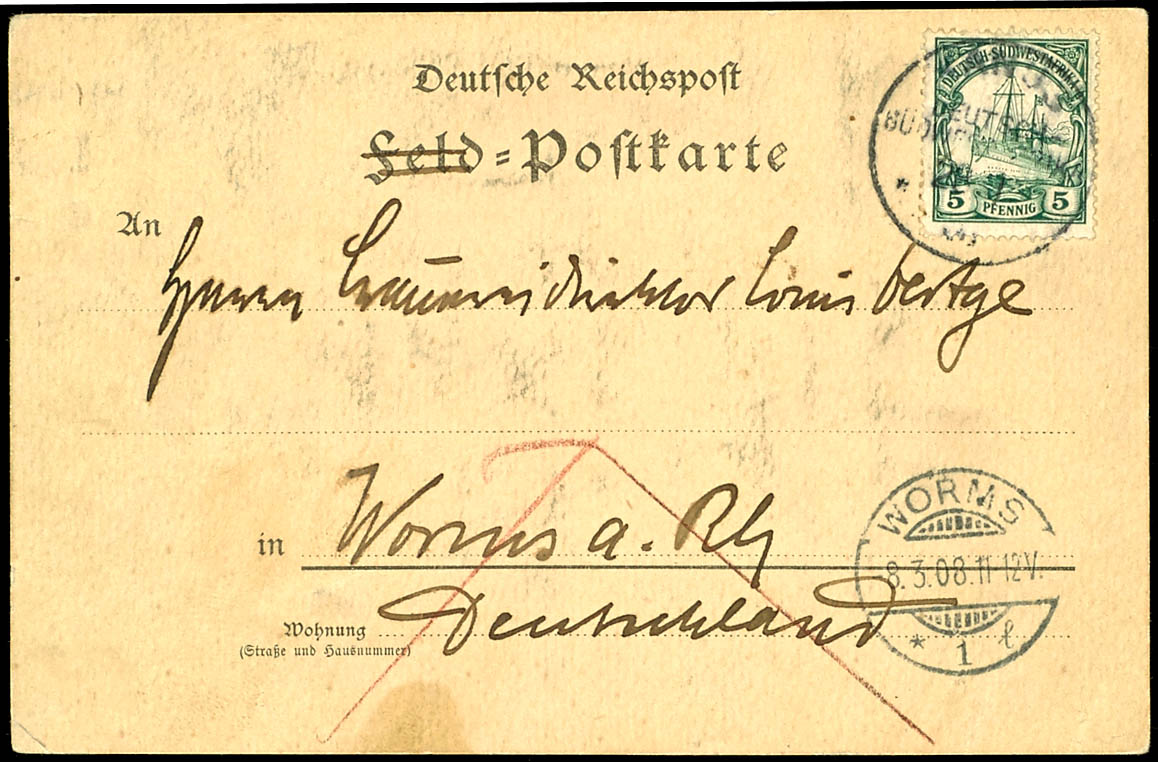 Deutsche Reichspost
Feld=Postkarte
DEUTSCH-SÜDWESTAFRIKA
5 PFENNIG 5
DEUTSCH
SÜDWESTAFRIKA
An
Herrn Brauereidirektor Louis Bertge
WORMS
8.3.08.11-12V.
* 1 l
in Worms a. Rh
Deutschland
Wohnung
(Straße und Hausnummer)